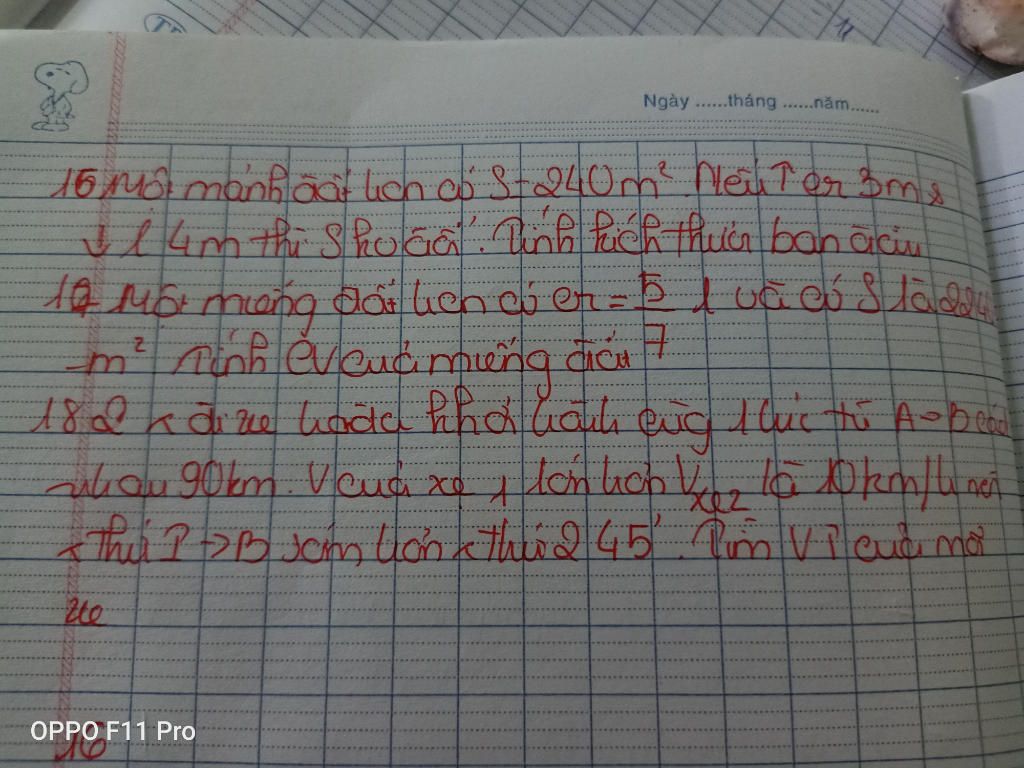 Ngày ......tháng ......năm......
16 Một mảnh đất hcn có S = 240m². Nếu ↑ cr 3m &
↓ l 4m thì S ko đổi. Tính kích thước ban đầu
17 Một miếng đất hcn có cr = 5/7 l và có S là
m² Tính CV của miếng đất
18 2 x đi xe khởi hành cùng 1 lúc từ A → B cách
nhau 90km. V của xe 1 lớn hơn V xe 2 là 10km/h nên
x thứ I → B sớm hơn x thứ 2 45'. Tìm VT của mỗi
xe
16
OPPO F11 Pro